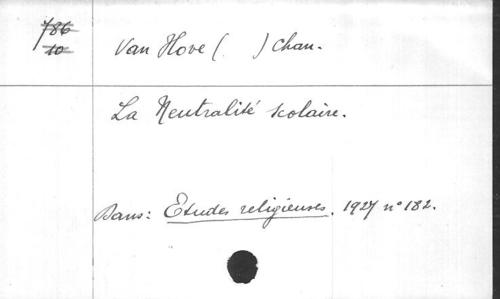 786
10
Van Hove ( ) Chan.
La Neutralité scolaire.
Dans: Etudes religieuses. 1927 n° 182.